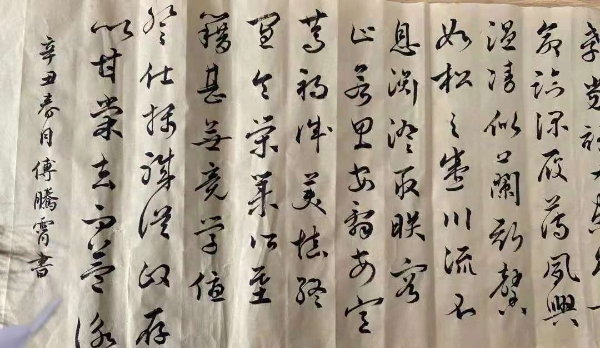 命臨深履薄夙興
溫凊似蘭斯馨
如松之盛川流不
息淵澄取映容
止若思言辭安定
篤初誠美慎終
宜令榮業所基
籍甚無竟學優
登仕攝職從政存
以甘棠去而益詠
辛丑春月傅騰霄書